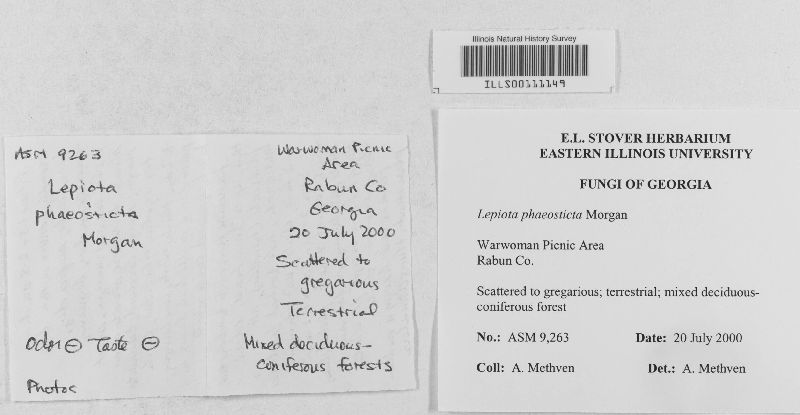 Illinois Natural History Survey
ILLS00111149
ASM 9263
Lepiota
phaeosticta
Morgan
Odor ⊖ Taste ⊖
Photos
Warwoman Picnic
Area
Rabun Co
Georgia
20 July 2000
Scattered to
gregarious
Terrestrial
Mixed deciduous-
coniferous forests
E.L. STOVER HERBARIUM
EASTERN ILLINOIS UNIVERSITY
FUNGI OF GEORGIA
Lepiota phaeosticta Morgan
Warwoman Picnic Area
Rabun Co.
Scattered to gregarious; terrestrial; mixed deciduous-
coniferous forest
No.: ASM 9,263 Date: 20 July 2000
Coll: A. Methven Det.: A. Methven